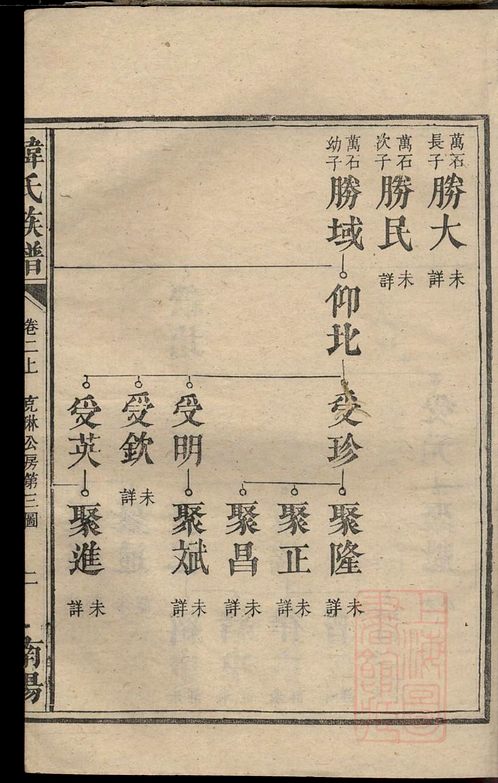 萬石長子
勝大
未詳
萬石次子
勝民
未詳
萬石幼子
勝域
仰北
受珍
受明
受欽
未詳
受英
聚隆
未詳
聚正
未詳
聚昌
未詳
聚斌
未詳
聚進
未詳
韓氏族譜
卷二上
克琳公房第三圖
南陽
上海圖書館藏